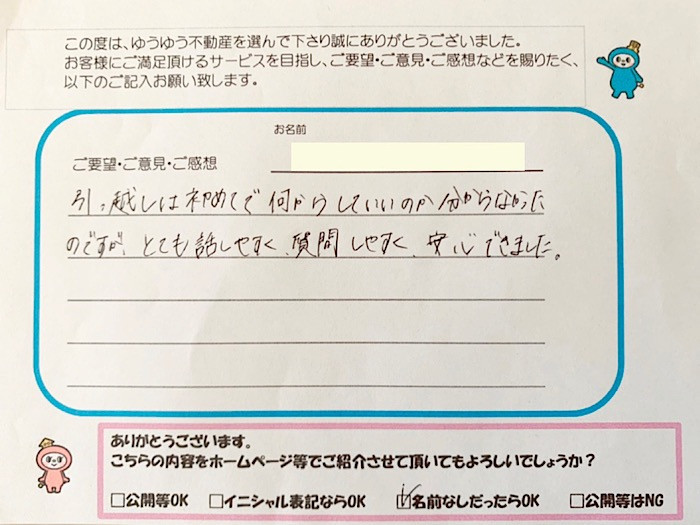 この度は、ゆうゆう不動産を選んで下さり誠にありがとうございました。
お客様にご満足頂けるサービスを目指し、ご要望・ご意見・ご感想などを賜りたく、
以下のご記入お願い致します。
お名前
ご要望・ご意見・ご感想
引っ越しは初めてで何からしていいのか分からなかった
のですが、とても話しやすく、質問しやすく、安心できました。
ありがとうございます。
こちらの内容をホームページ等でご紹介させて頂いてもよろしいでしょうか？
□公開等OK □イニシャル表記ならOK ☑名前なしだったらOK □公開等はNG